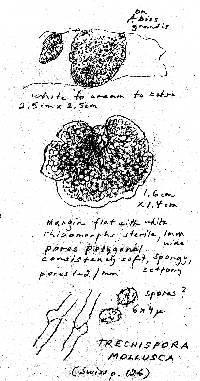 on
Abies
grandis
white to cream to ochre
2.5cm x 2.5cm
1.6cm
x 1.4cm
Margin flat with white
rhizomorphs sterile, 1mm
wide
pores polygonal
consistency soft, spongy,
cottony
pores 1-2/mm
spores?
6x4µ
TRECHISPORA
MOLLUSCA
(Swiss p. 126)